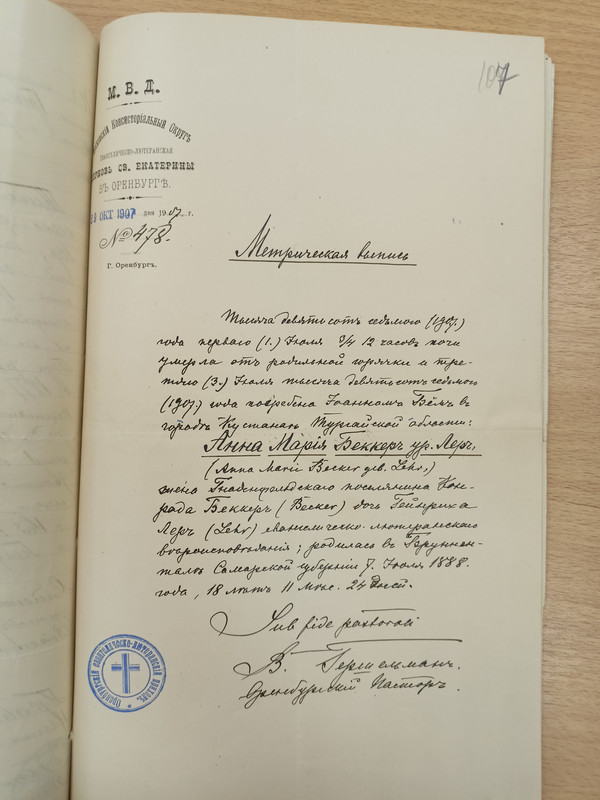 107
М. В. Д.
Консисторіальный Округъ
Евангелическо-лютеранская
Церковь Св. Екатерины
въ Оренбургѣ.
29 ОКТ 1907 дня 1907 г.
№ 478.
Г. Оренбургъ.
Метрическая выпись
Тысяча девятьсотъ седьмого (1907.)
года перваго (1.) Іюля 3/4 12 часовъ ночи
умерла отъ родильной горячки и тре-
тяго (3.) Іюля тысяча девятьсотъ седьмого
(1907.) года погребена Іоанномъ Бёмъ въ
городѣ Кустанаѣ Тургайской области:
Анна Марія Беккеръ ур. Леръ,
(Anna Marie Becker geb. Lehr,)
жена Гнаденфельдскаго поселянина Кон-
рада Беккеръ (Becker) дочь Гейнриха
Леръ (Lehr) евангелическо-лютеранскаго
вѣроисповѣданія; родилась въ Брунен-
талѣ Самарской губерніи 7. Іюля 1888.
года, 18 лѣтъ 11 мѣс. 24 дней.
Sub fide pastorali
В. Гершельманъ.
Оренбургскій Пасторъ.
Оренбургскій евангелическо-лютеранскій приходъ